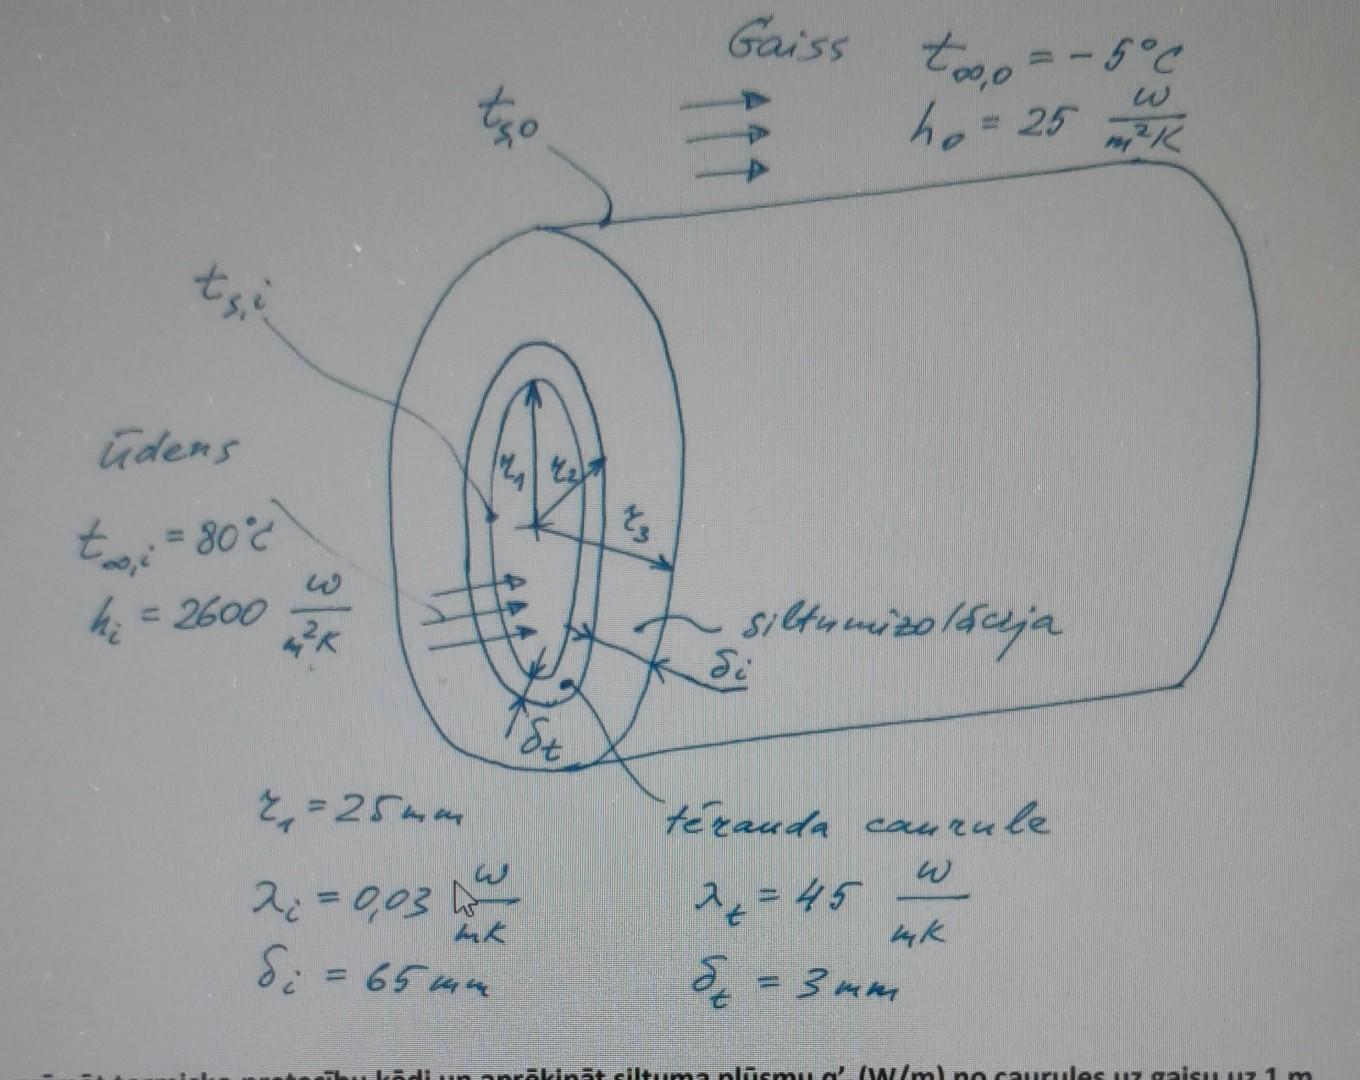 Gaiss t∞,o = -5°C
ho = 25 W/m²K
ts,o
ts,i
ūdens
t∞,i = 80°C
hi = 2600 W/m²K
r1 r2
r3
siltumizolācija
δi
δt
r1 = 25mm
tērauda caurule
λi = 0,03 W/mK
λt = 45 W/mK
δi = 65mm
δt = 3mm
termisko pretestību ķēdi un aprēķināt siltuma plūsmu q' (W/m) no caurules uz gaisu uz 1 m